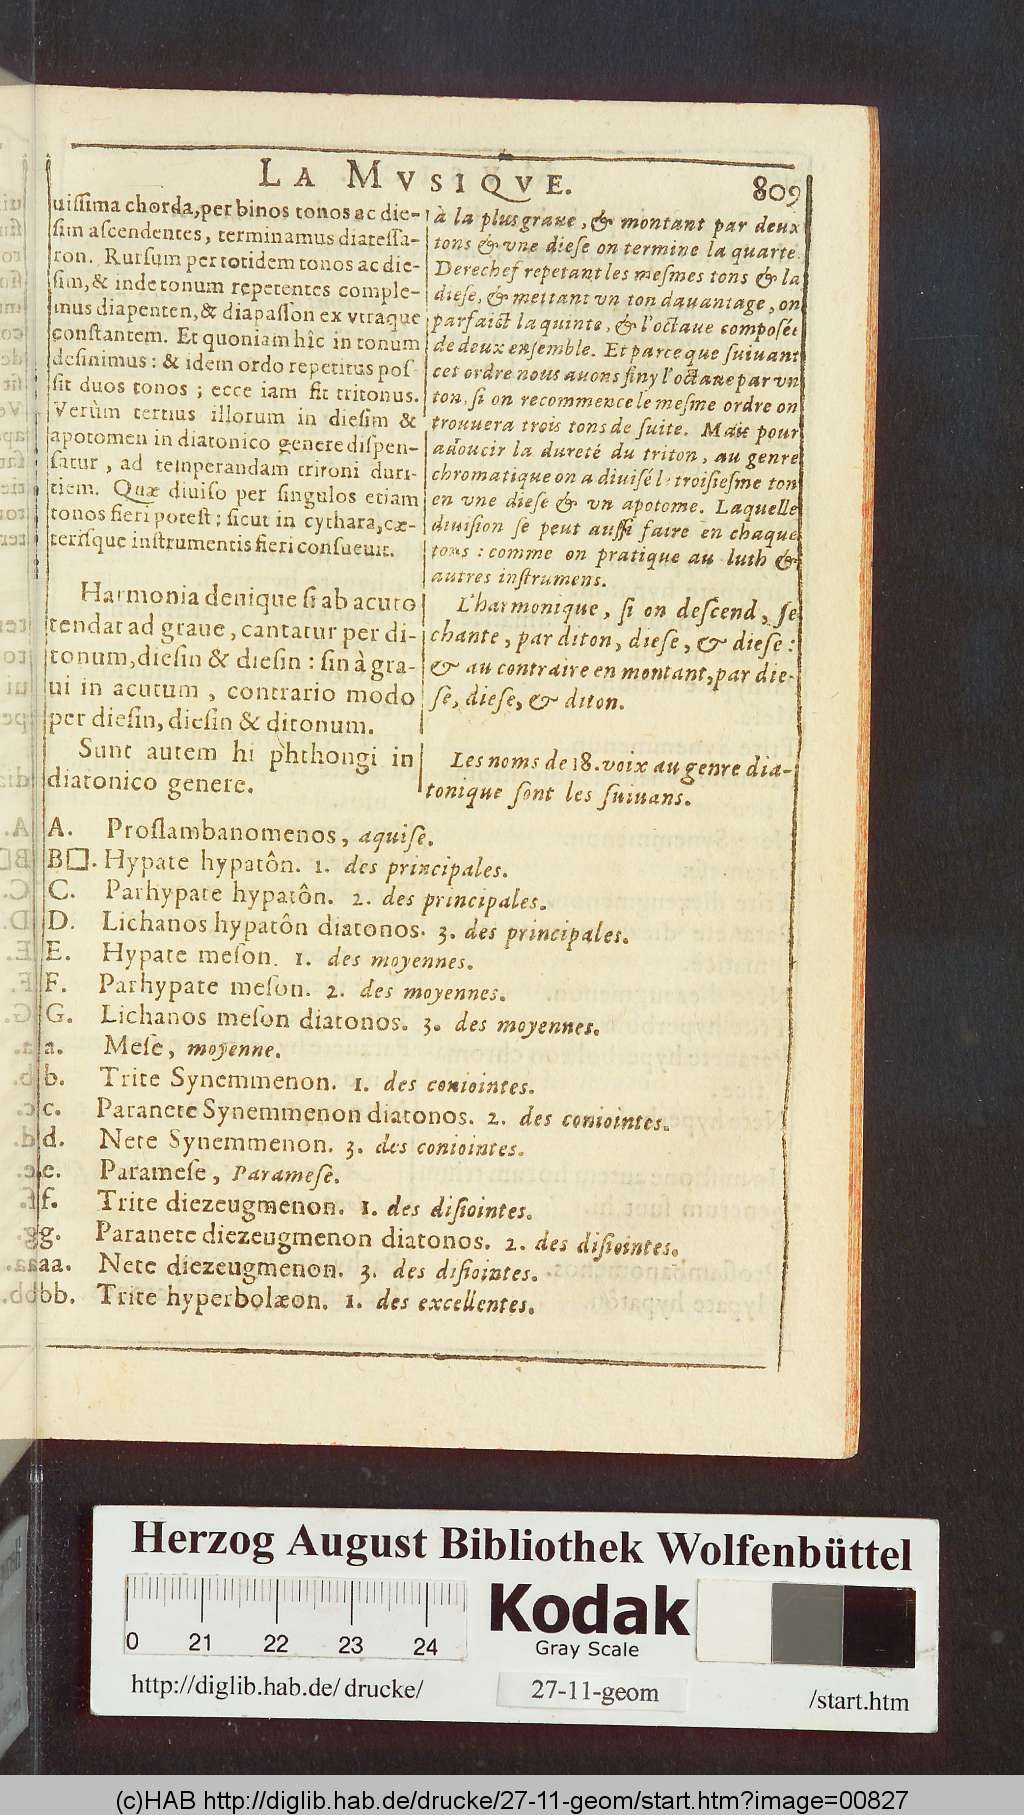 LA MVSIQVE. 809
uiſſima chorda, per binos tonos ac die-
ſim aſcendentes, terminamus diateſſa-
ron. Rurſum per totidem tonos ac die-
ſim, & inde tonum repetentes comple-
mus diapenten, & diapaſſon ex vtraque
conſtantem. Et quoniam hîc in tonum
deſinimus: & idem ordo repetitus poſ-
ſit duos tonos; ecce iam fit tritonus.
Verùm tertius illorum in dieſim &
apotomen in diatonico genere diſpen-
ſatur, ad temperandam tritoni duri-
tiem. Quæ diuiſo per ſingulos etiam
tonos fieri poteſt; ſicut in cythara, cæ-
teriſque inſtrumentis fieri conſueuit.
Harmonia denique ſi ab acuto
tendat ad graue, cantatur per di-
tonum, dieſin & dieſin: ſin à gra-
ui in acutum, contrario modo
per dieſin, dieſin & ditonum.
Sunt autem hi phthongi in
diatonico genere.
à la plus graue, & montant par deux
tons & vne dieſe on termine la quarte
Derechef repetant les meſmes tons & la
dieſe, & mettant vn ton dauantage, on
parfaict la quinte, & l'octaue compoſée
de deux enſemble. Et parce que ſuiuant
cet ordre nous auons finy l'octaue par vn
ton, ſi on recommence le meſme ordre on
trouuera trois tons de ſuite. Mais pour
adoucir la dureté du triton, au genre
chromatique on a diuiſé le troiſieſme ton
en vne dieſe & vn apotome. Laquelle
diuiſion ſe peut auſſi faire en chaque
tons: comme on pratique au luth &
autres inſtrumens.
L'harmonique, ſi on deſcend, ſe
chante, par diton, dieſe, & dieſe:
& au contraire en montant, par die-
ſe, dieſe, & diton.
Les noms de 18. voix au genre dia-
tonique ſont les ſuiuans.
A. Proſlambanomenos, aquiſe.
B□. Hypate hypatôn. 1. des principales.
C. Parhypate hypatôn. 2. des principales.
D. Lichanos hypatôn diatonos. 3. des principales.
E. Hypate meſon. 1. des moyennes.
F. Parhypate meſon. 2. des moyennes.
G. Lichanos meſon diatonos. 3. des moyennes.
a. Meſe, moyenne.
b. Trite Synemmenon. 1. des coniointes.
c. Paranete Synemmenon diatonos. 2. des coniointes.
d. Nete Synemmenon. 3. des coniointes.
e. Parameſe, Parameſe.
f. Trite diezeugmenon. 1. des diſiointes.
g. Paranete diezeugmenon diatonos. 2. des diſiointes.
aa. Nete diezeugmenon. 3. des diſiointes.
bb. Trite hyperbolæon. 1. des excellentes.
Herzog August Bibliothek Wolfenbüttel
0 21 22 23 24
Kodak
Gray Scale
http://diglib.hab.de/ drucke/ 27-11-geom /start.htm
(c)HAB http://diglib.hab.de/drucke/27-11-geom/start.htm?image=00827